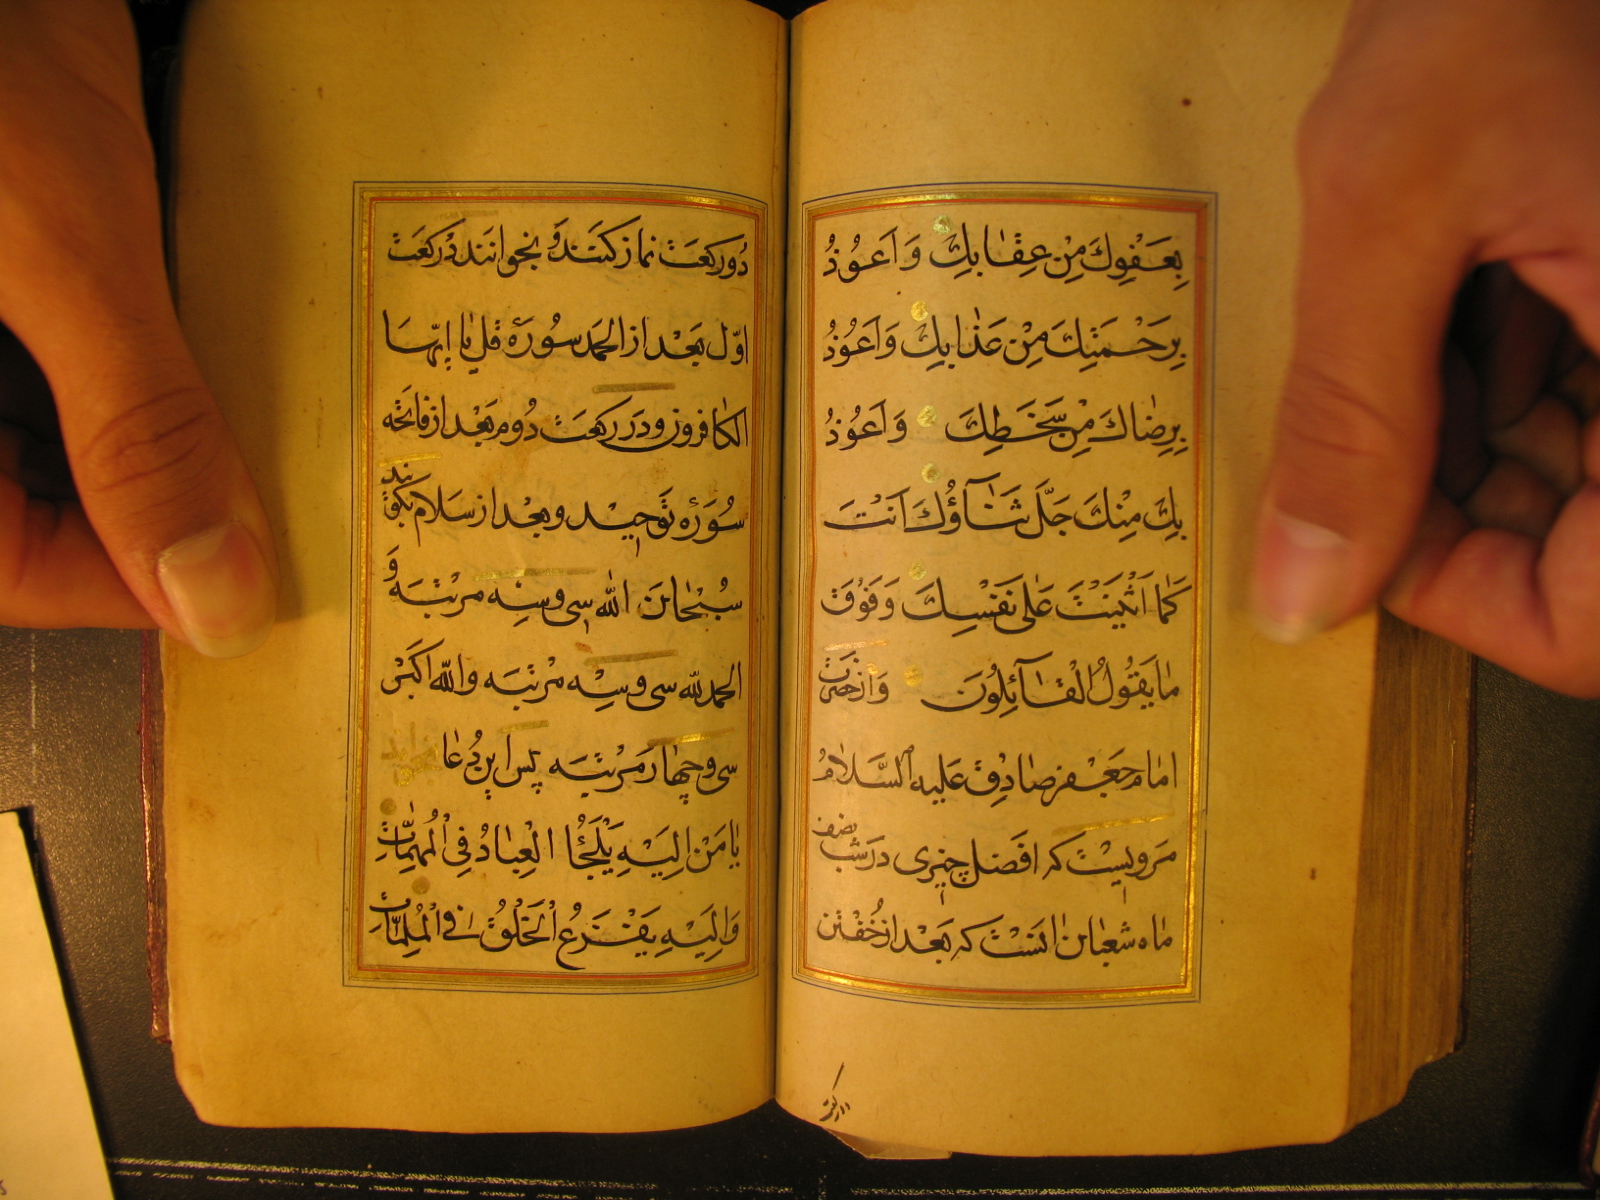 بِعَفْوِكَ مِنْ عِقٰابِكَ وَ اَعُوذُ
بِرَحْمَتِكَ مِنْ عَذٰابِكَ وَ اَعُوُذُ
بِرِضٰاكَ مِنْ سَخَطِكَ وَ اَعُوُذُ
بِكَ مِنْكَ جَلَّ ثَنٰآؤُكَ اَنْتَ
كَمٰا اَثْنَيْتَ عَلٰى نَفْسِكَ وَ فَوْقَ
مٰا يَقُولُ الْقٰآئِلُونَ وَ از حضرت
امٰام جَعْفر صٰادِق عَلَيهِ السَّلٰامُ
مَرويسْت كه افضل چيزى دَر شب نصف
مٰاه شعبٰان اٰنسْتَ كه بَعْد از خُفْتن
دو ركعت
دُو ركعَت نماز كنند وَ بخوانَند دَر ركعَت
اوّل بَعْد از الحَمد سُورَهٔ قل يٰا ايّها
الكٰافرون و دَر ركعَت دُوم بَعْد از فاتحَه
سُورَهٔ تَوحيد و بعْد از سَلام بكَويند
سُبْحٰانَ الله سى و سِه مرْتبَه وَ
الحمد لله سى و سِه مرْتبَه و الله اكبَرْ
سى و چهٰار مَرْتبَه پس اين دُعٰا
يٰا مَنْ اِلَيْهِ يَلْجَأُ الْعِبٰادُ فِى الْمُهِمّٰاتِ
وَ اِلَيْهِ يَفْزَعُ الْخَلْقُ فِى الْمُلِمّٰاتِ